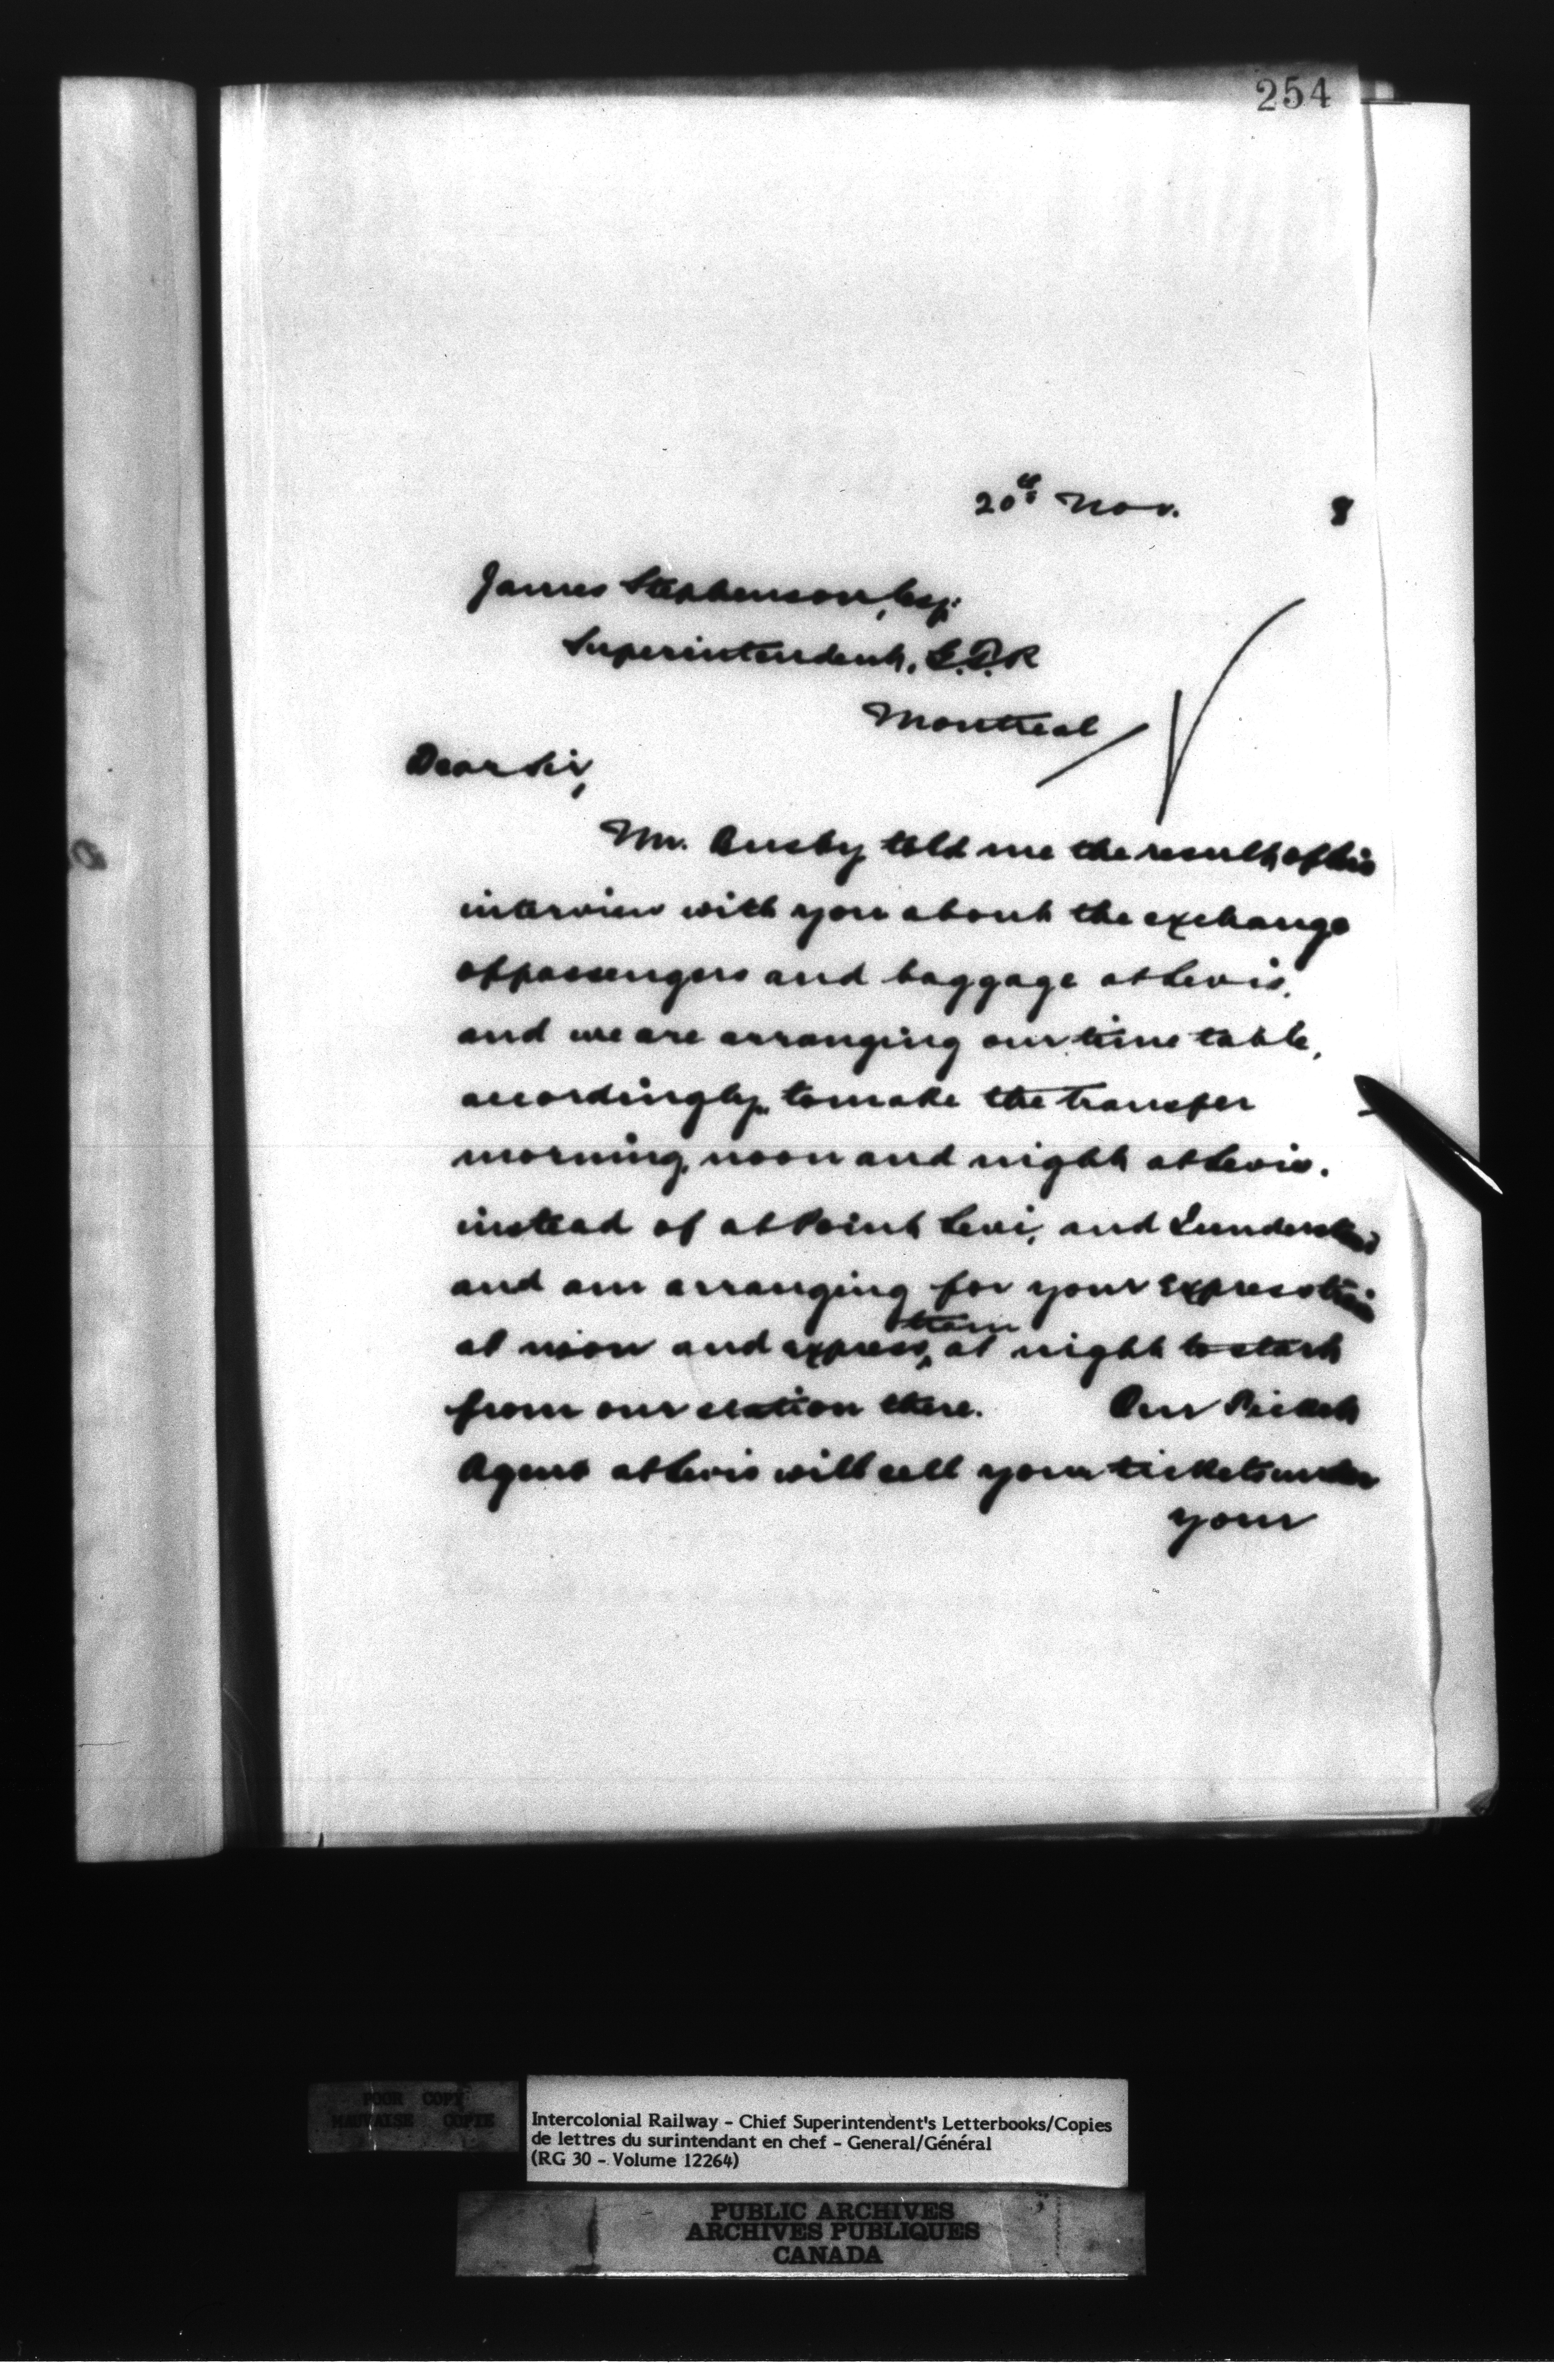 254
20th Nov. 8
James Stephenson, Esq.
Superintendent, G.T.R
Montreal
Dear Sir,
Mr. Busby told me the result of his
interview with you about the exchange
of passengers and baggage at Levis,
and we are arranging our time table,
accordingly, to make the transfer
morning, noon and night at Levis.
instead of at Point Levi, and I understand
and am arranging for your express train
at noon and express train at night to start
from our station there. Our Ticket
Agent at Levis will sell your tickets under
your
POOR COPY
MAUVAISE COPIE
Intercolonial Railway - Chief Superintendent's Letterbooks/Copies
de lettres du surintendant en chef - General/Général
(RG 30 - Volume 12264)
PUBLIC ARCHIVES
ARCHIVES PUBLIQUES
CANADA